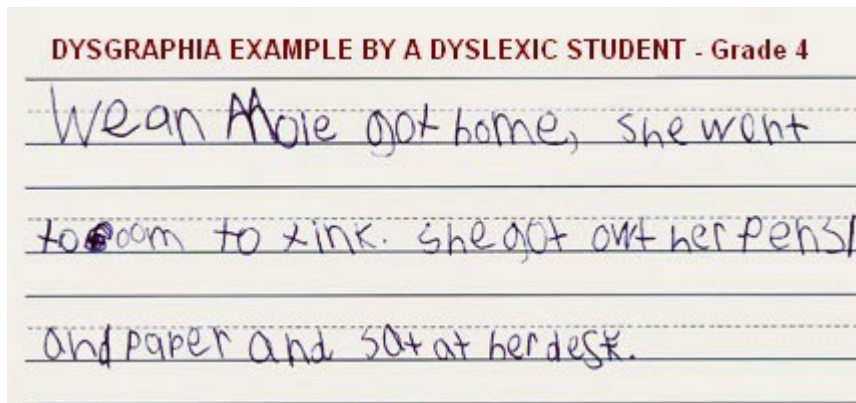 DYSGRAPHIA EXAMPLE BY A DYSLEXIC STUDENT - Grade 4
Wean Mole got home, she went
to room to tink. she got owt her pensl
and paper and sat at her desk.